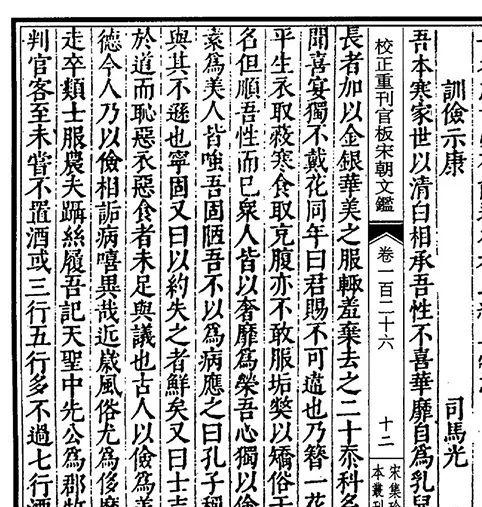 訓儉示康
司馬光
吾本寒家世以清白相承吾性不喜華靡自為乳
校正重刊官板宋朝文鑑
卷一百二十六
十二
宋集珍
本叢刊
長者加以金銀華美之服輙羞棄去之二十忝科名
聞喜宴獨不戴花同年曰君賜不可違也乃簪一花
平生衣取蔽寒食取充腹亦不敢服垢獘以矯俗干
名但順吾性而已衆人皆以奢靡為榮吾心獨以儉
素為美人皆嗤吾固陋吾不以為病應之曰孔子稱
與其不遜也寧固又曰以約失之者鮮矣又曰士志
於道而恥惡衣惡食者未足與議也古人以儉為美
德今人乃以儉相詬病嘻異哉近歲風俗尤為侈靡
走卒類士服農夫躡絲履吾記天聖中先公為郡牧
判官客至未嘗不置酒或三行五行多不過七行酒